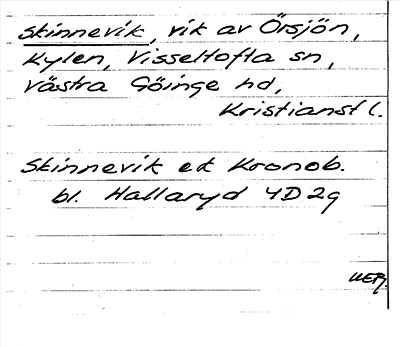 Skinnevik, vik av Örsjön,
Kylen, Visseltofta sn,
Västra Göinge hd,
Kristianst l.
Skinnevik ek Kronob.
bl. Hallaryd 4D2g